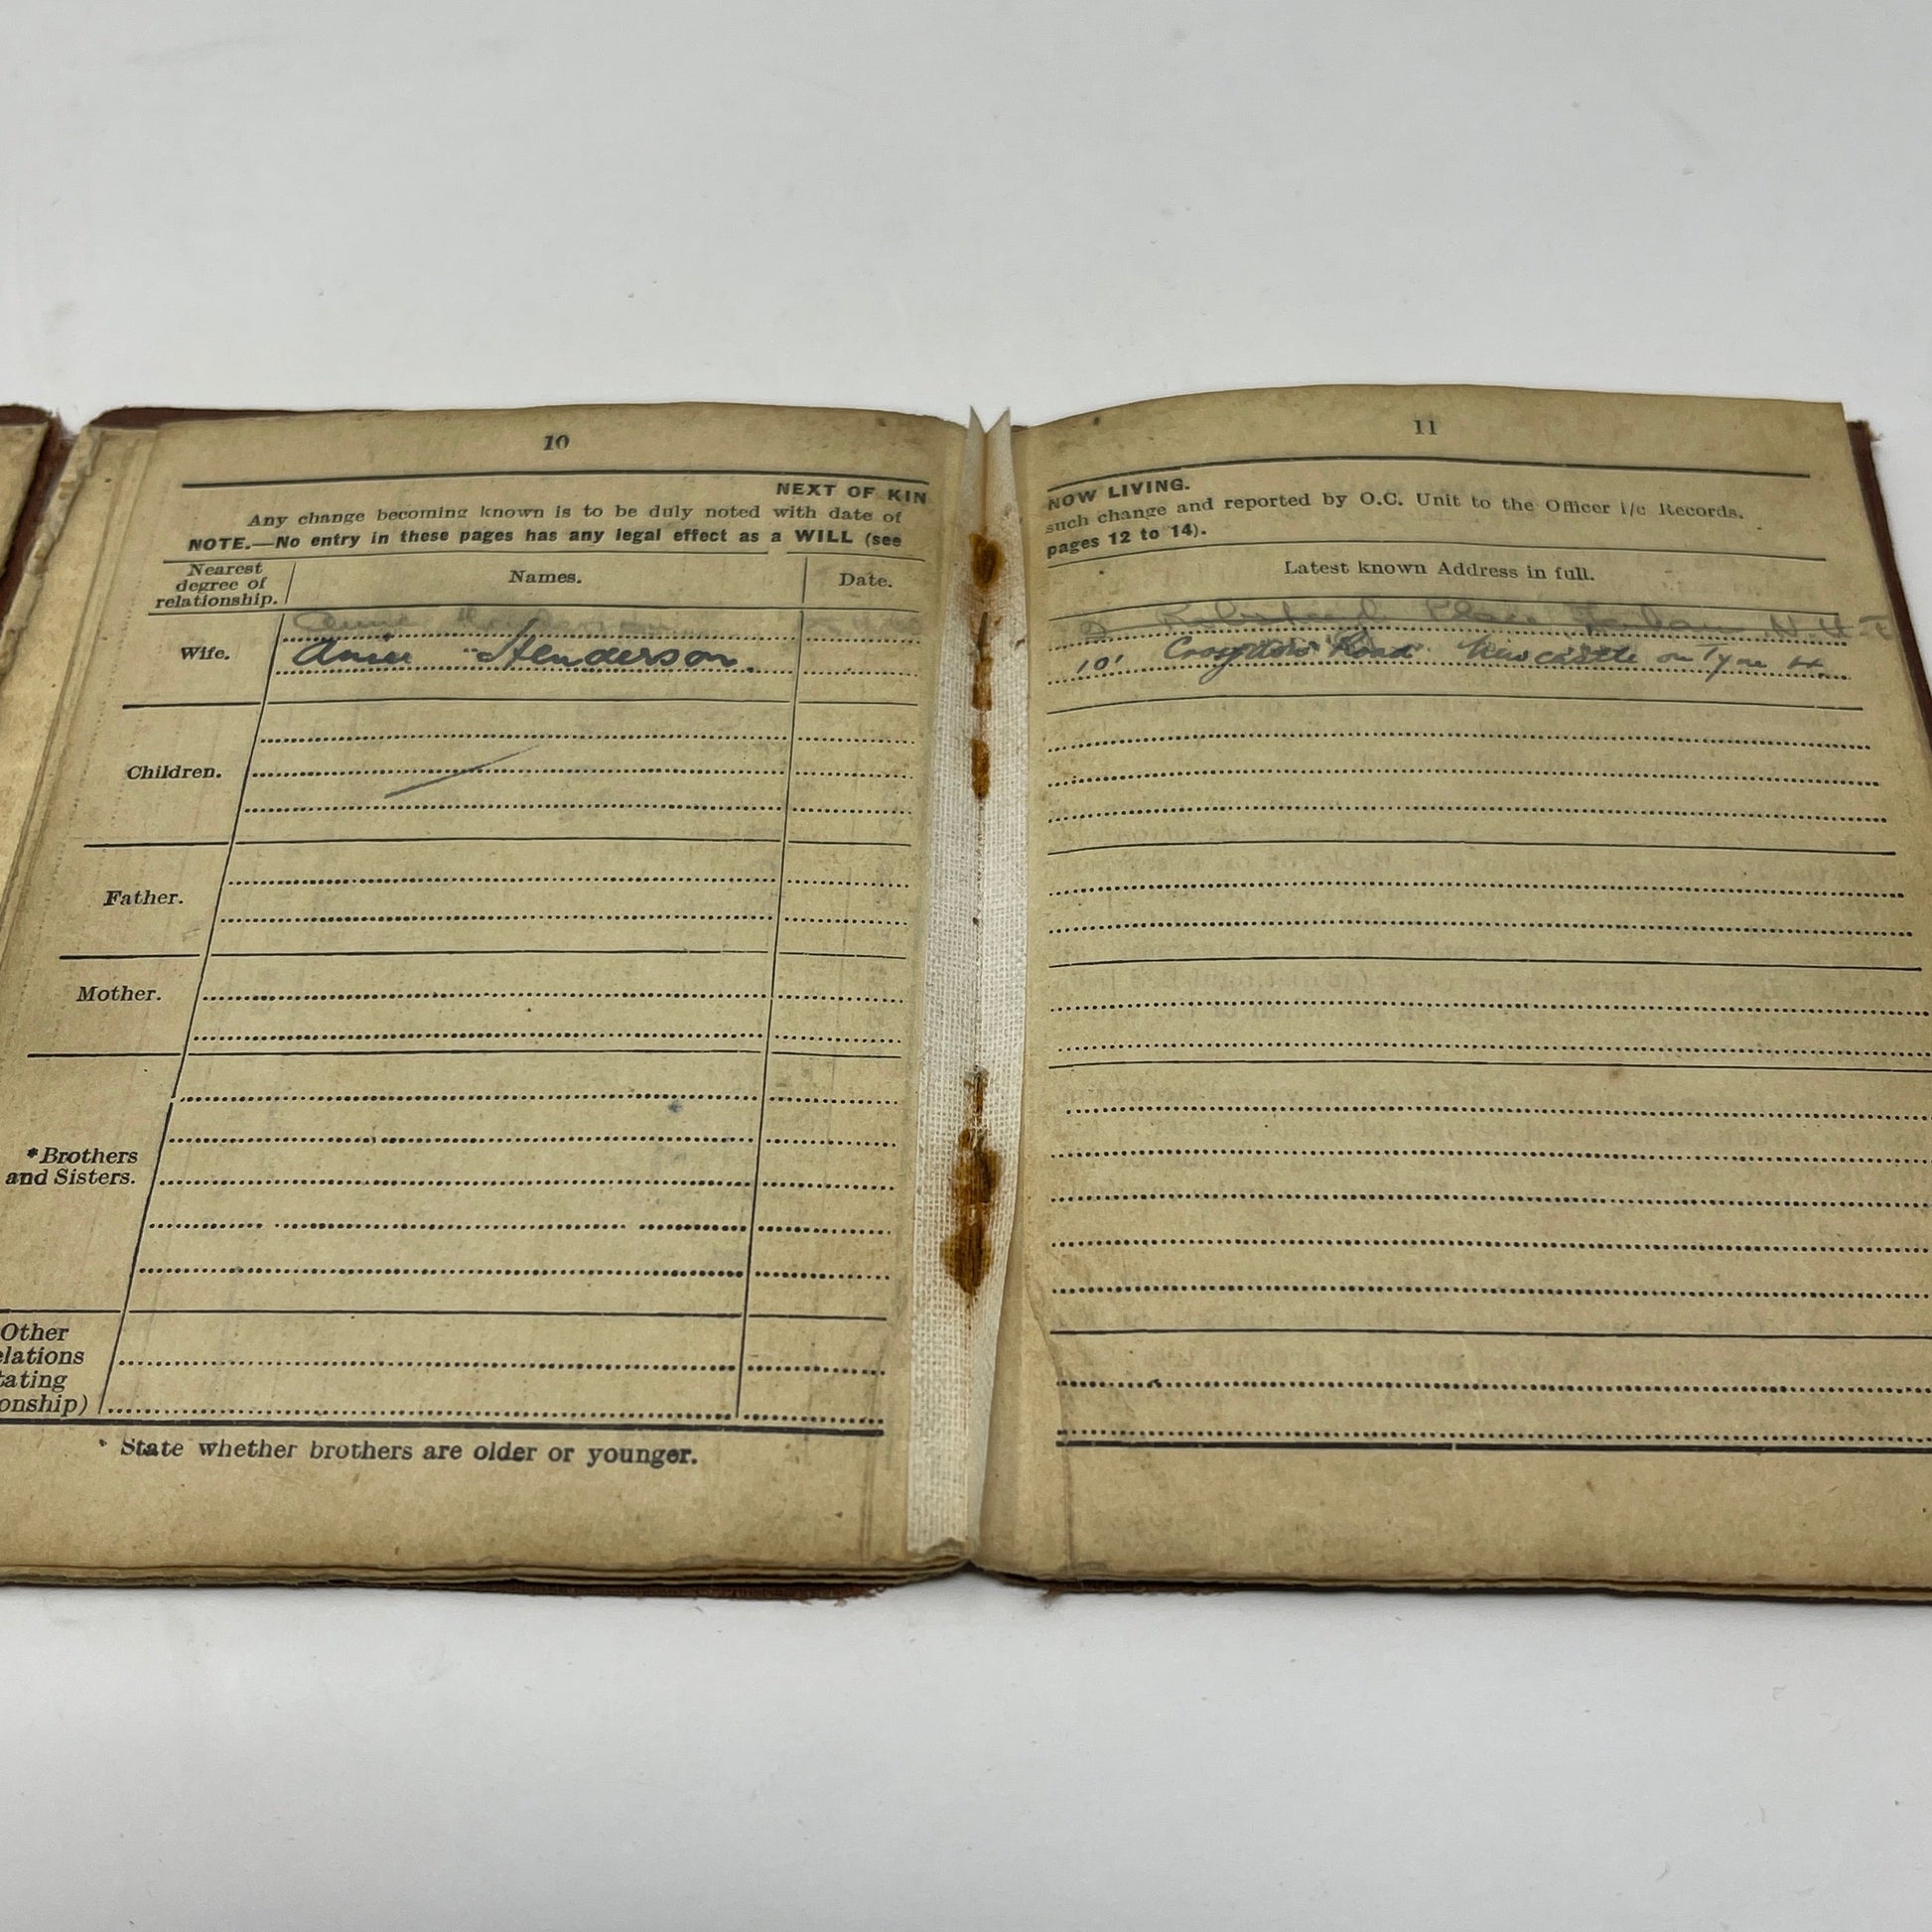 10
NEXT OF KIN
Any change becoming known is to be duly noted with date of
NOTE.—No entry in these pages has any legal effect as a WILL (see
Nearest
degree of
relationship.
Names.
Date.
Wife.
Annie Henderson
Annie Henderson.
Children.
Father.
Mother.
*Brothers
and Sisters.
Other
elations
tating
onship)
* State whether brothers are older or younger.
11
NOW LIVING.
such change and reported by O.C. Unit to the Officer i/c Records.
pages 12 to 14).
Latest known Address in full.
Place
101 Croydon Road Newcastle on Tyne 4.